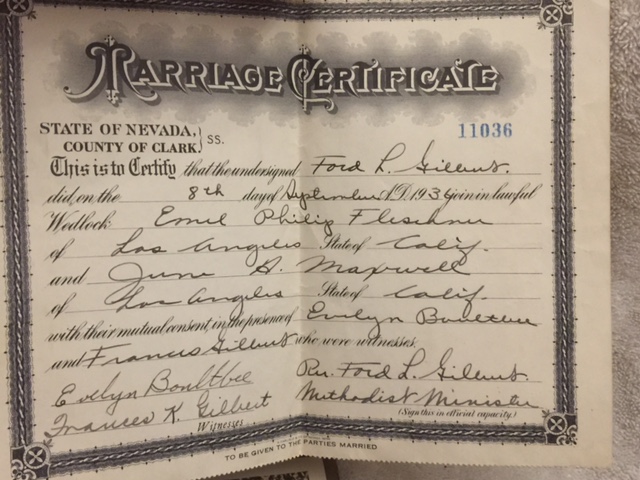 MARRIAGE CERTIFICATE
STATE OF NEVADA,
COUNTY OF CLARK. } SS.
11036
This is to Certify that the undersigned Ford L. Gilbert.
did, on the 8th day of September A.D. 1936 join in lawful
Wedlock Emil Philip Fleschner
of Los Angeles State of Calif.
and June A. Maxwell
of Los Angeles State of Calif.
with their mutual consent, in the presence of Evelyn Boultbee
and Francis Gilbert who were witnesses
Evelyn Boultbee
Rev. Ford L. Gilbert.
Frances K. Gilbert
Methodist Minister
Witnesses
(Sign this in official capacity.)
TO BE GIVEN TO THE PARTIES MARRIED